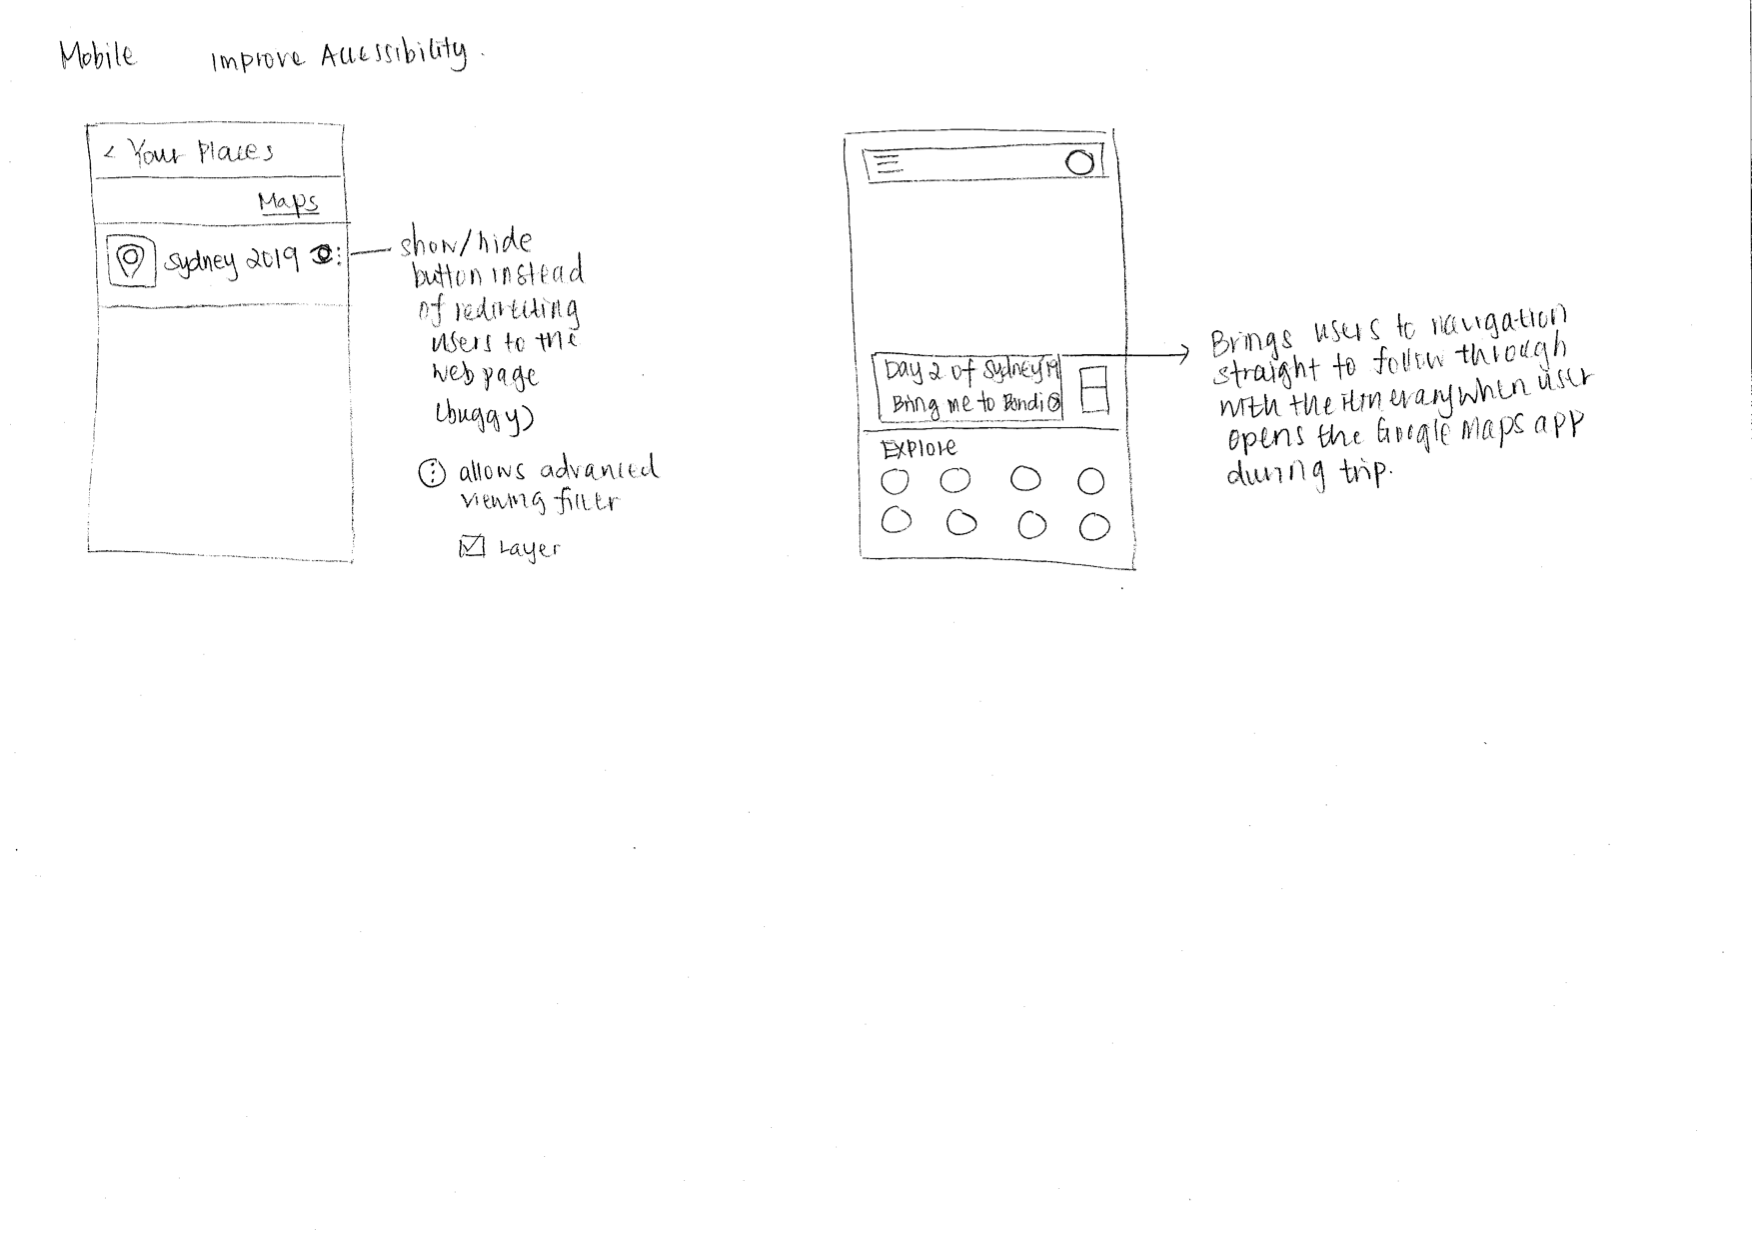 Mobile Improve Accessibility.
< Your Places
Maps
Sydney 2019
show/hide
button instead
of redirecting
users to the
web page
(buggy)
allows advanced
viewing filter
Layer
Day 2 of Sydney 19
Bring me to Bondi
Explore
Brings users to navigation
straight to follow through
with the itinerary when user
opens the Google Maps app
during trip.